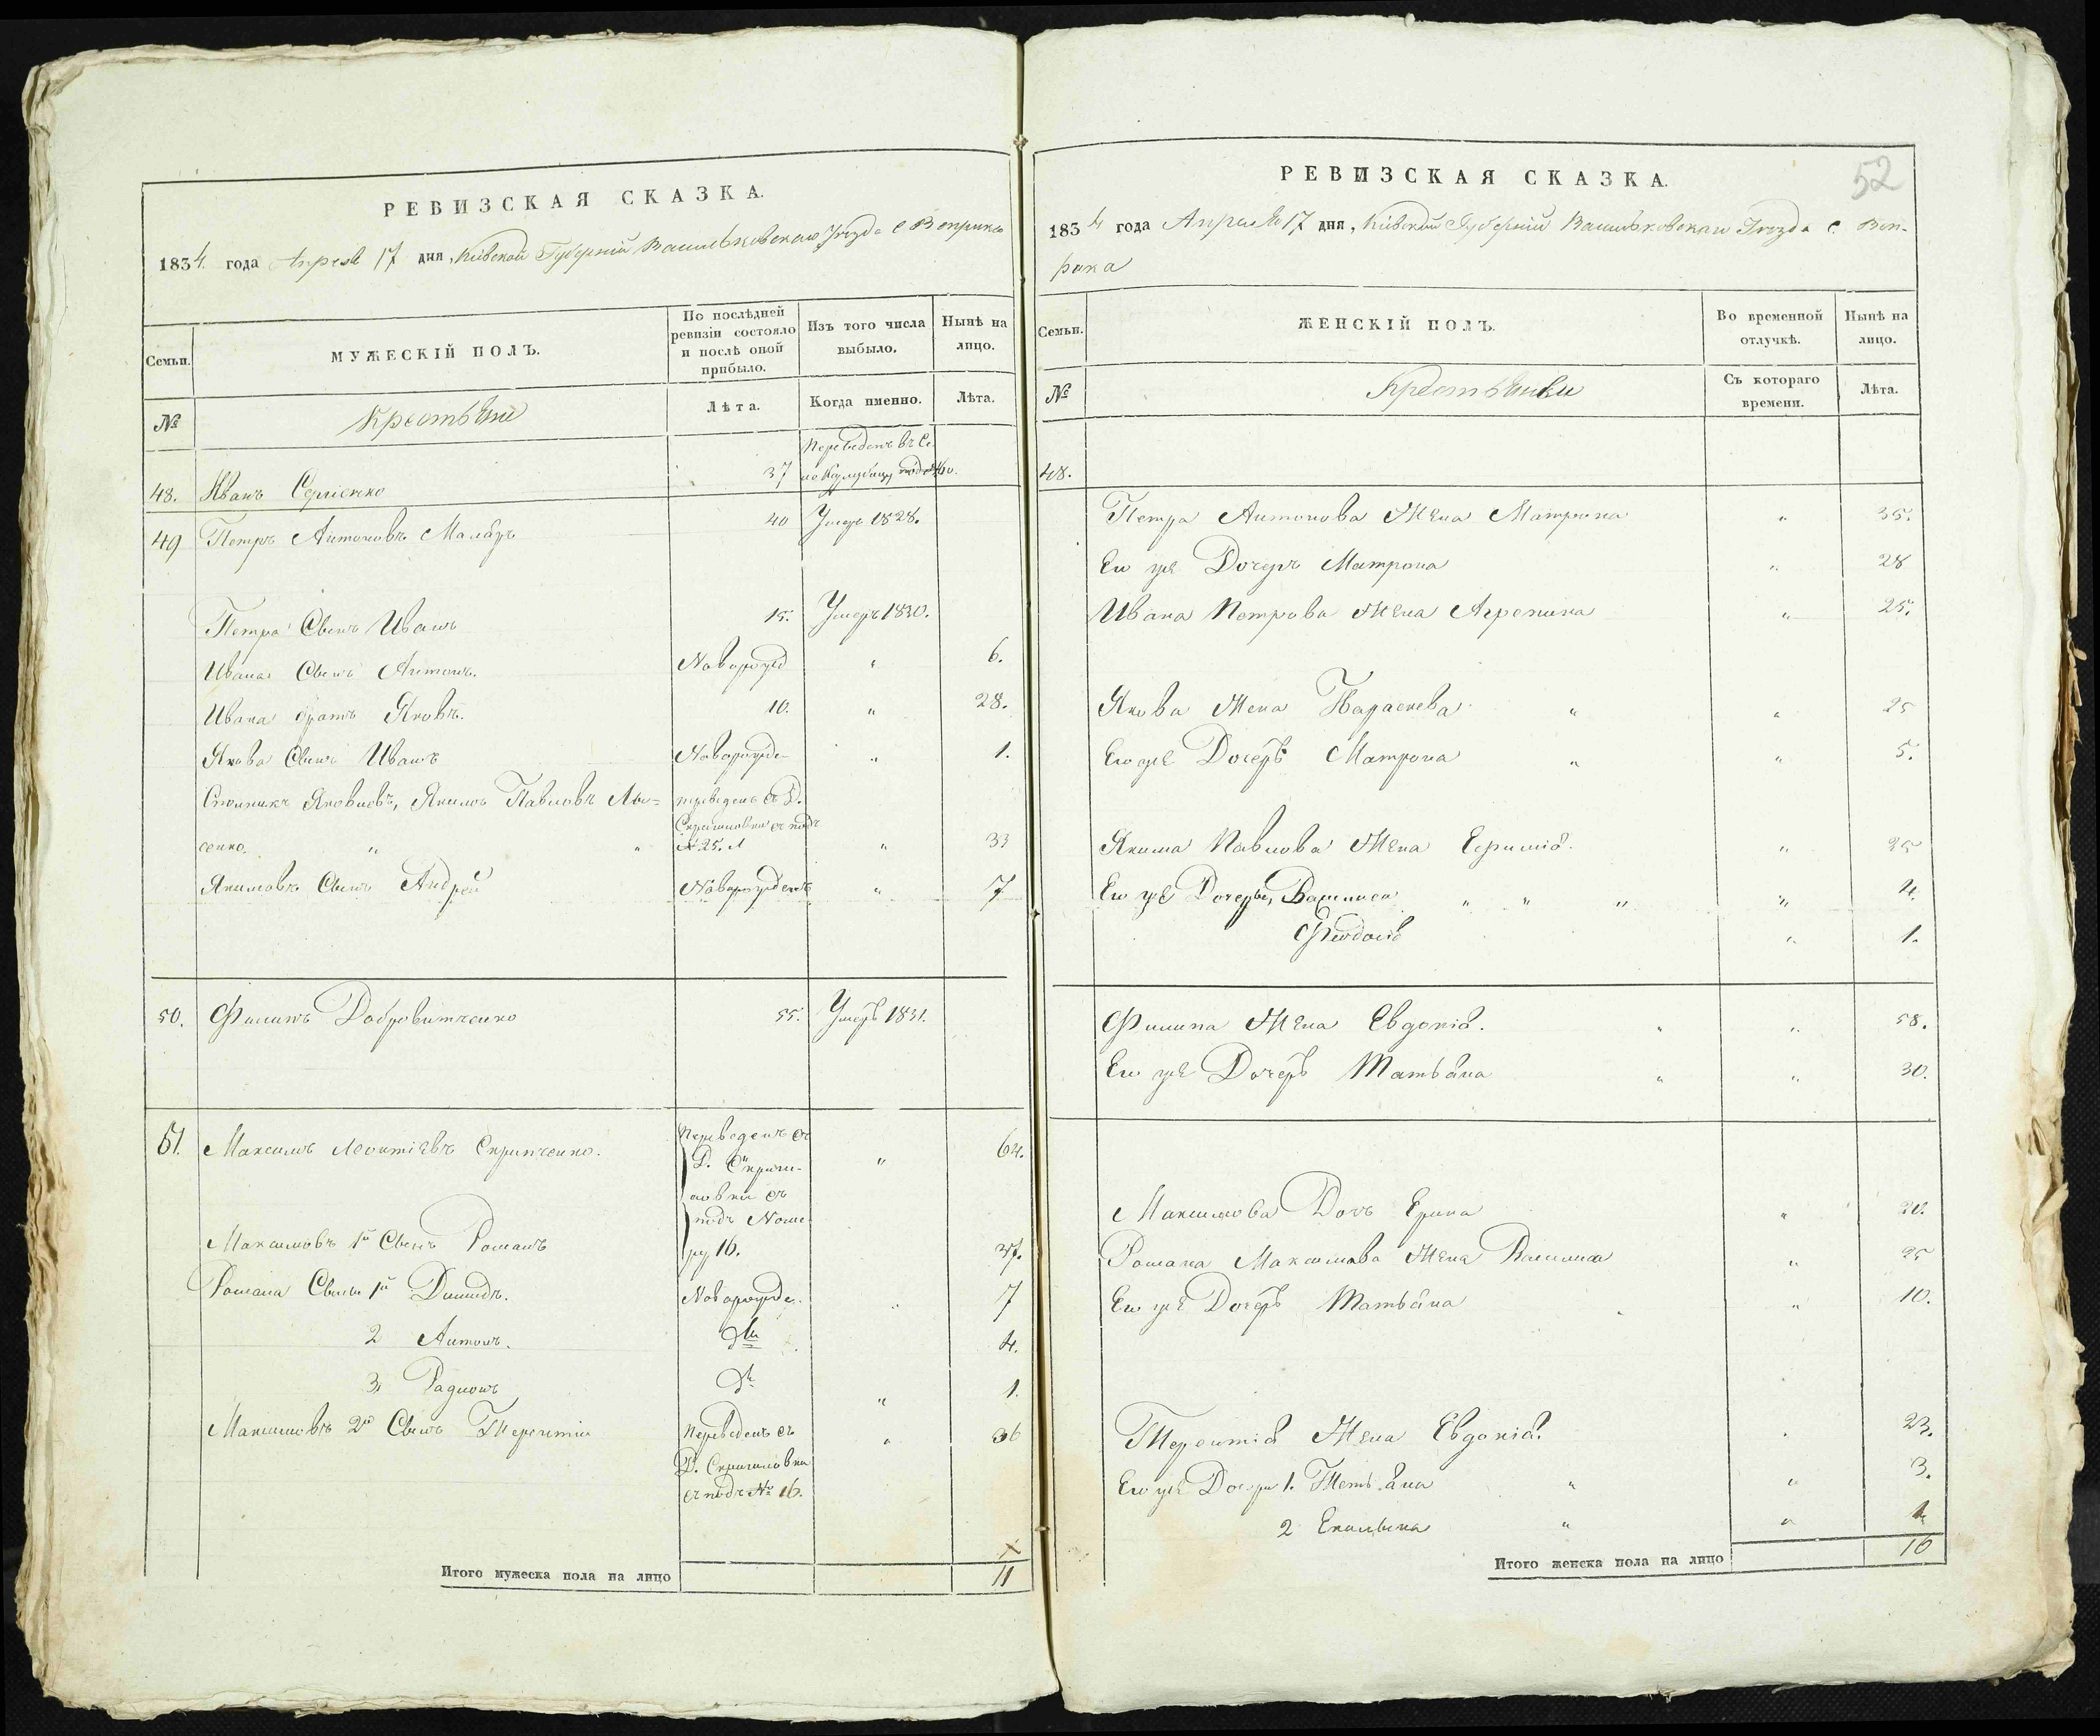 РЕВИЗСКАЯ СКАЗКА.
1834 года Апреля 17 дня, Кіевской Губерніи Васильковскаго Уезда С Веприка
Семьи.
МУЖЕСКІЙ ПОЛЪ.
По послѣдней ревизіи состояло и послѣ оной прибыло.
Изъ того числа выбыло.
Нынѣ на лицо.
№
Крестьяне
Лѣта.
Когда именно.
Лѣта.
48. Иванъ Сергіенко 37 Переведенъ въ Се-
49 Петръ Антоновъ 40 Умеръ 1828.
Петра Сынъ Иванъ 15. Умеръ 1830.
Ивана Сынъ Антонъ. Новорожд " 6.
Ивана братъ Яковъ. 10. " 28.
Якова Сынъ Иванъ Новорожде- " 1.
Яковлевъ, Якимъ Павловъ Лы= переведенъ съ Д.
сенко. " " № 25. " 33
Якимовъ Сынъ Андрей Новорожденъ " 7
50. Филипъ Добровитченко 55. Умеръ 1831.
51. Максимъ Леонтіевъ Скрипченко. Переведенъ съ " 64.
Д. Скригали-
овки съ
подъ Номе-
Максимовъ 1й Сынъ Романъ ру 16. 37.
Романа Сыны 1й Димидъ. Новорожде. " 7
2 Антонъ. Дто 4.
3 Радионъ Дто " 1.
Максимовъ 2й Сынъ Терентій Переведенъ съ " 36
съ подъ № 16.
Итого мужеска пола на лицо 11
52
РЕВИЗСКАЯ СКАЗКА.
1834 года Апреля 17 дня, Кіевской Губерніи Васильковскаго Уезда С. Веп-
рика
Семьи.
ЖЕНСКІЙ ПОЛЪ.
Во временной отлучкѣ.
Нынѣ на лицо.
№
Крестьянки
Съ котораго времени.
Лѣта.
48.
Петра Антонова Жена Матрона " 35.
Ею же Дочерь Матрона " 28
Ивана Петрова Жена Агрепина " 25.
Якова Жена Параскева " " 25
Ею же Дочерь Матрона " " 5.
Якима Павлова Жена " 25
Ею же Дочеры, Василиса " " " " 4.
Феодосія " 1.
Филипа Жена Евдокія. " " 58.
Ею же Дочерь Матьяна " " 30.
Максимова Дочъ Ерина " 20.
Романа Максимова Жена Василиса " 25
Ею же Дочерь Татьяна " 10.
Терентія Жена Евдокія. " 23.
Ею же Дочери 1. Тетьяна " " 3.
2 " " 1
Итого женска пола на лицо 16